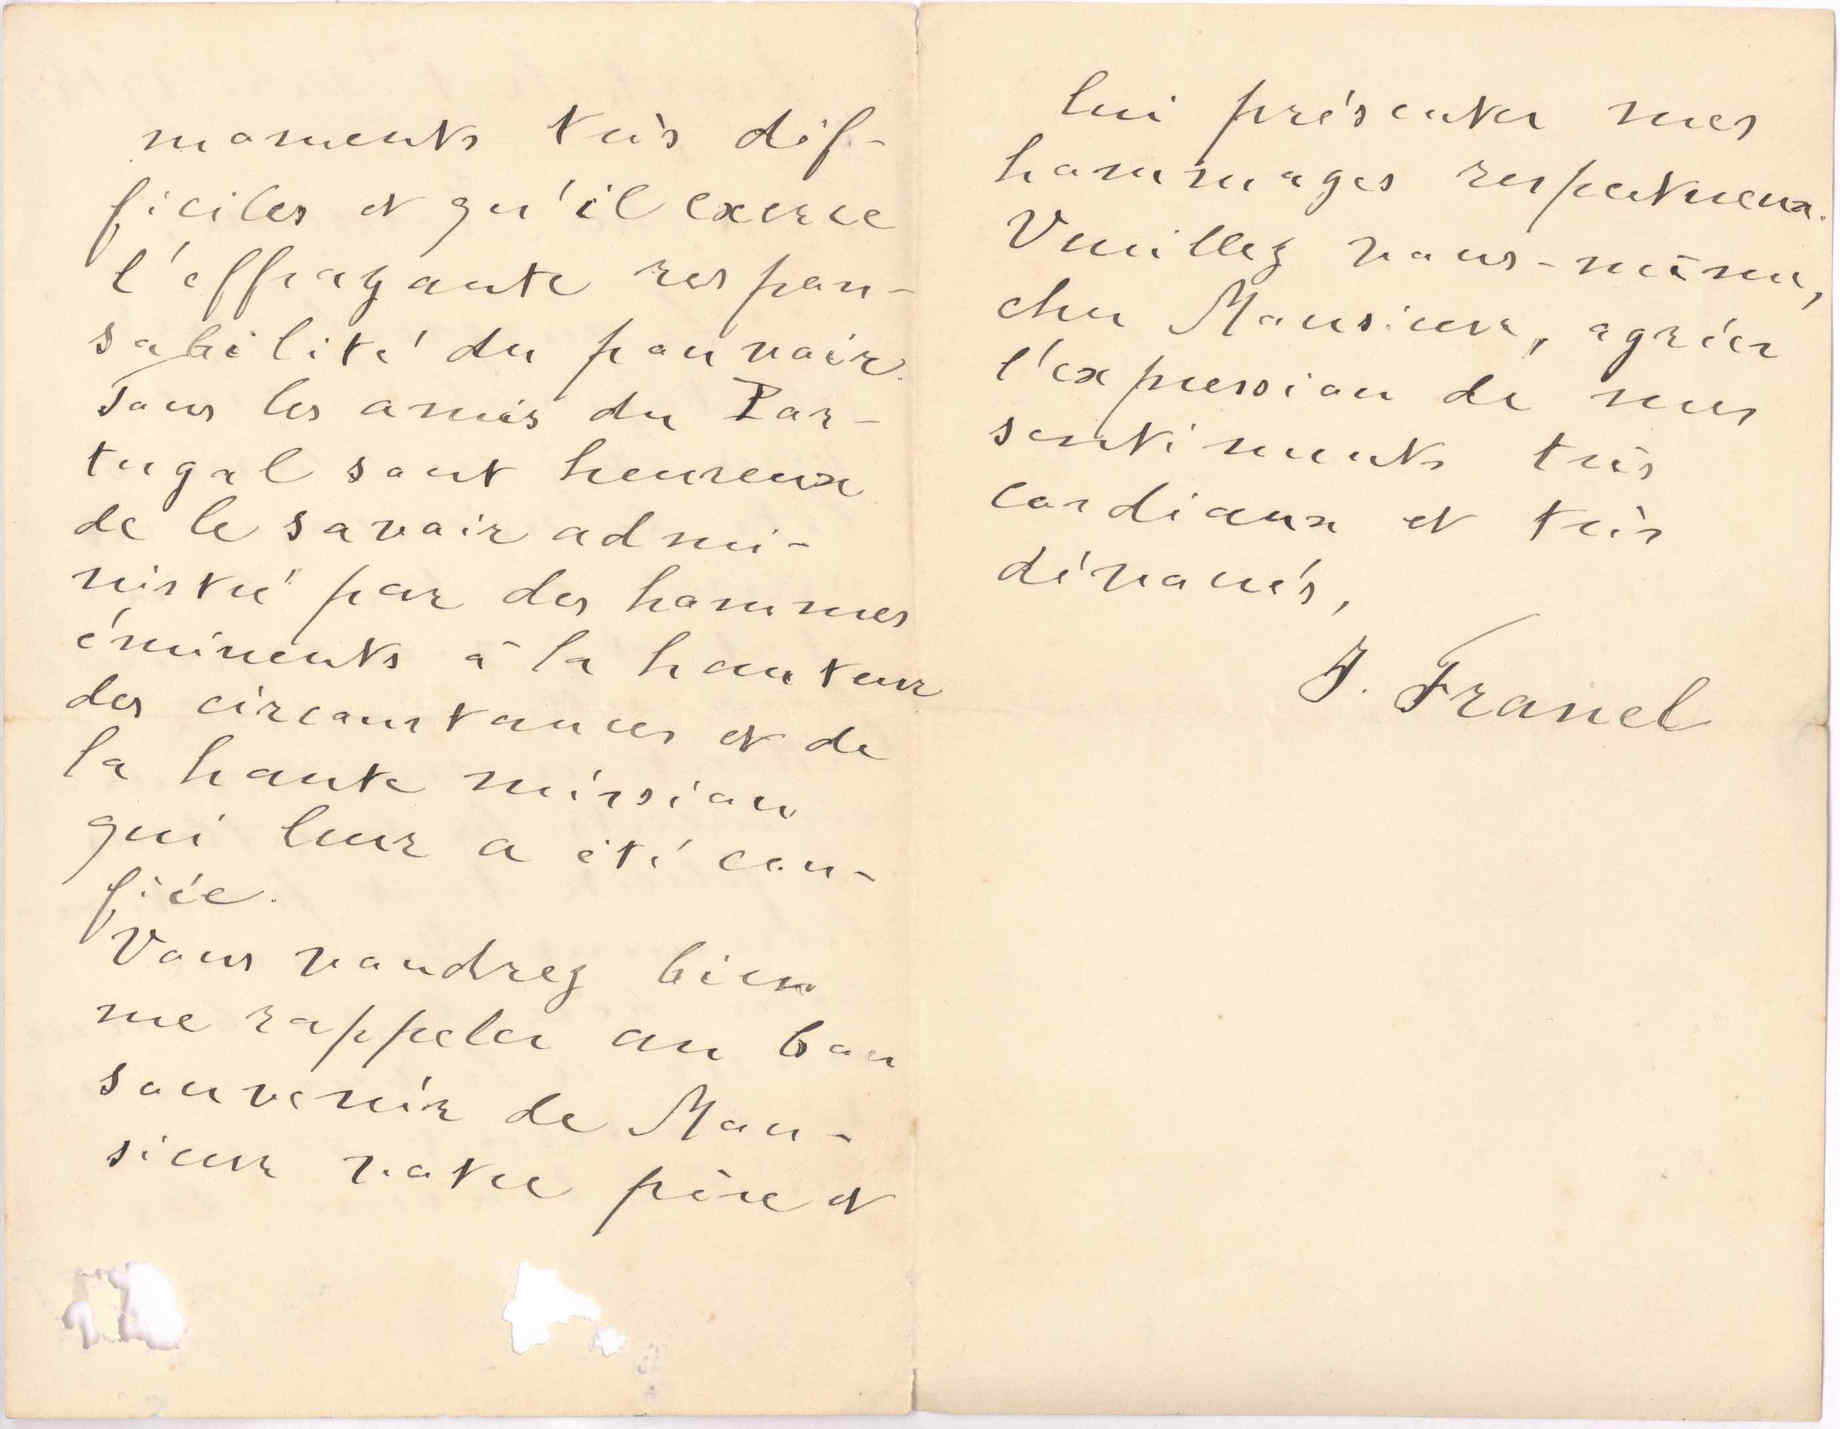 moments très dif-
ficiles et qu'il exerce
l'effrayante respon-
sabilité du pouvoir.
Tous les amis du Por-
tugal sont heureux
de le savoir admi-
nistré par des hommes
éminents à la hauteur
des circonstances et de
la haute mission
qui leur a été con-
fiée.
Vous voudrez bien
me rappeler au bon
souvenir de Mon-
sieur votre père et
lui présenter mes
hommages respectueux.
Veuillez vous-même,
cher Monsieur, agréer
l'expression de mes
sentiments très
cordiaux et très
dévoués,
J. Franel